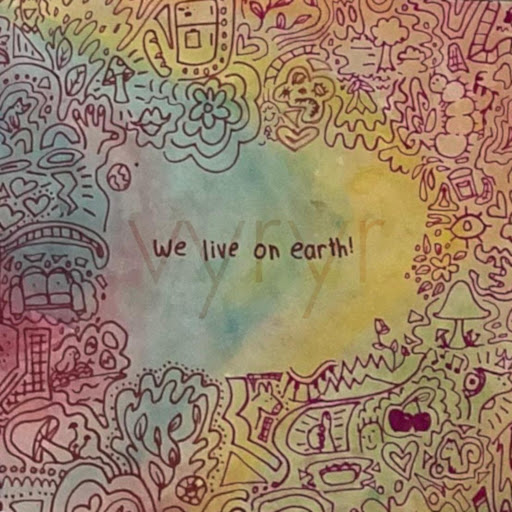 we live on earth!
vyryr